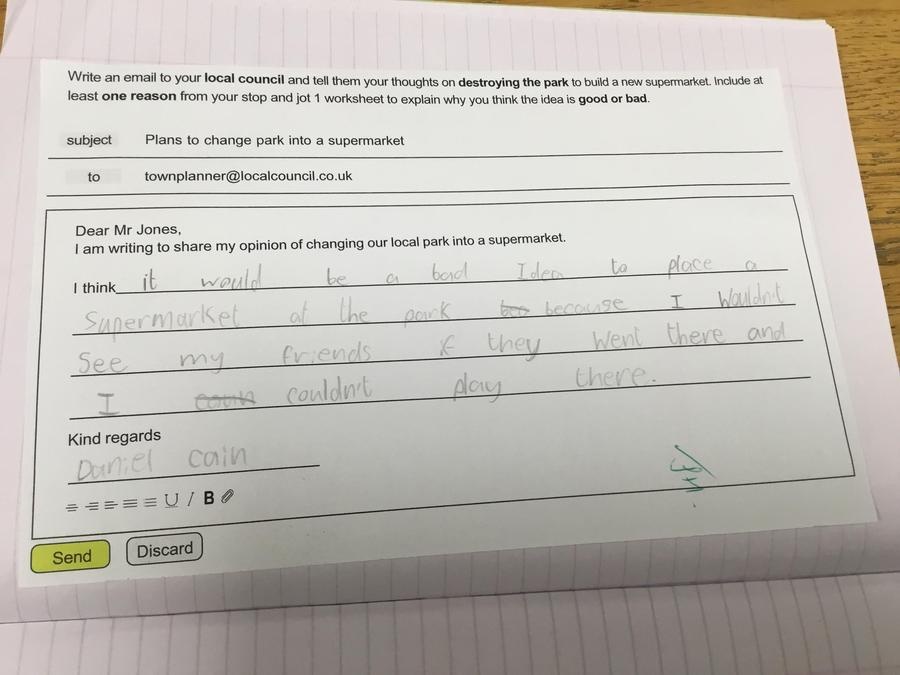 Write an email to your local council and tell them your thoughts on destroying the park to build a new supermarket. Include at
least one reason from your stop and jot 1 worksheet to explain why you think the idea is good or bad.
subject Plans to change park into a supermarket
to townplanner@localcouncil.co.uk
Dear Mr Jones,
I am writing to share my opinion of changing our local park into a supermarket.
I think it would be a bad Idea to place a
Supermarket at the park because I Wouldn't
See my friends if they Went there and
I couldn't play there.
Kind regards
Daniel cain
U / B
Send Discard